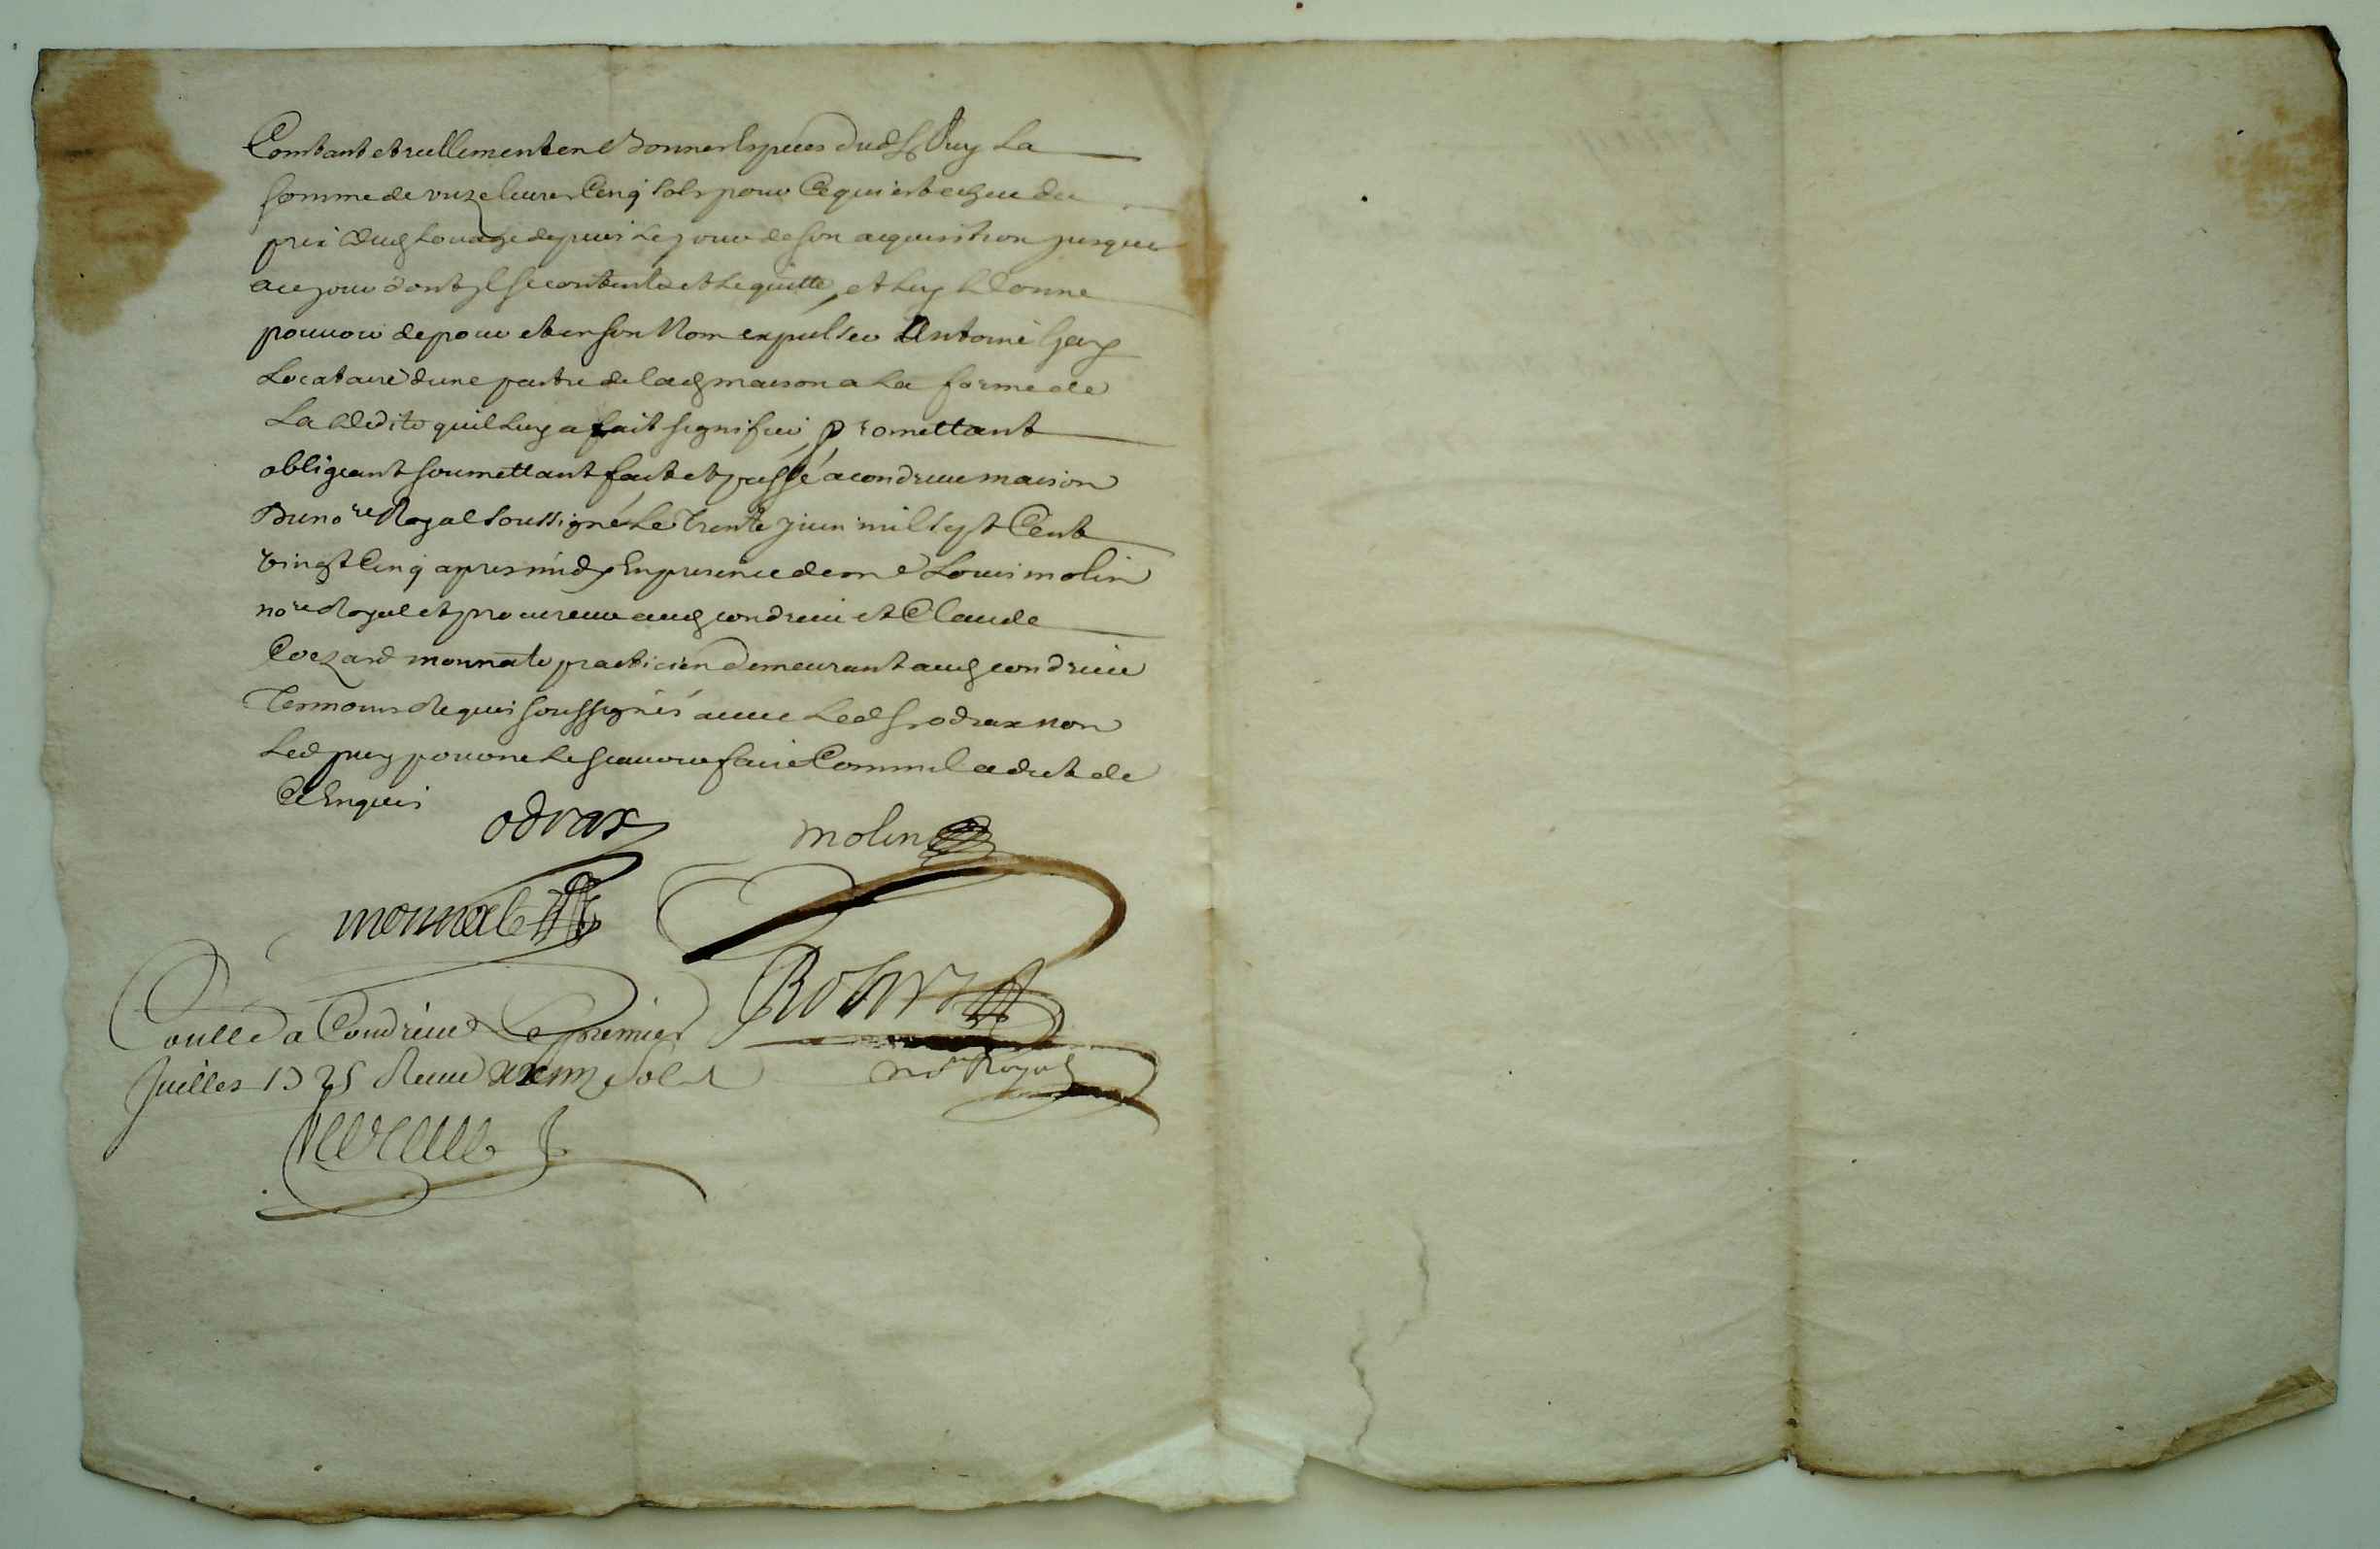 Contant et reellement en bonnes Especes dud. Sr Puy La
somme de unze livres Cinq sols pour Ce qui est echeu du
prix dud. Louage depuis Le jour de son acquisition jusques
a ce jour dont yl se contente et Le quitte, et Luy donne
pouvoir de pour et en son Nom expulser Antoine
Locataire dune partie de lad. maison a La forme de
La dedite quil Luy a fait signifier, promettant
obligeant soumettant fait et passé a condrieu maison
Du nore Royal soussigné Le Trente juin mil sept Cent
vingt Cinq apres midy En presence de me Louis molin
nore Royal et procureur aud. condrieu et Claude
monnate practicien demeurant aud. condrieu
Tesmoins Requis soussignés avec Led. Sr odrax non
Led. puy pour ne Le scavoir faire Comm il a dit de
Ce Enquis
odrax molin
monnate
Coullé a Condrieu Le premier
Juillet 1725 Receu sols
nore Royal